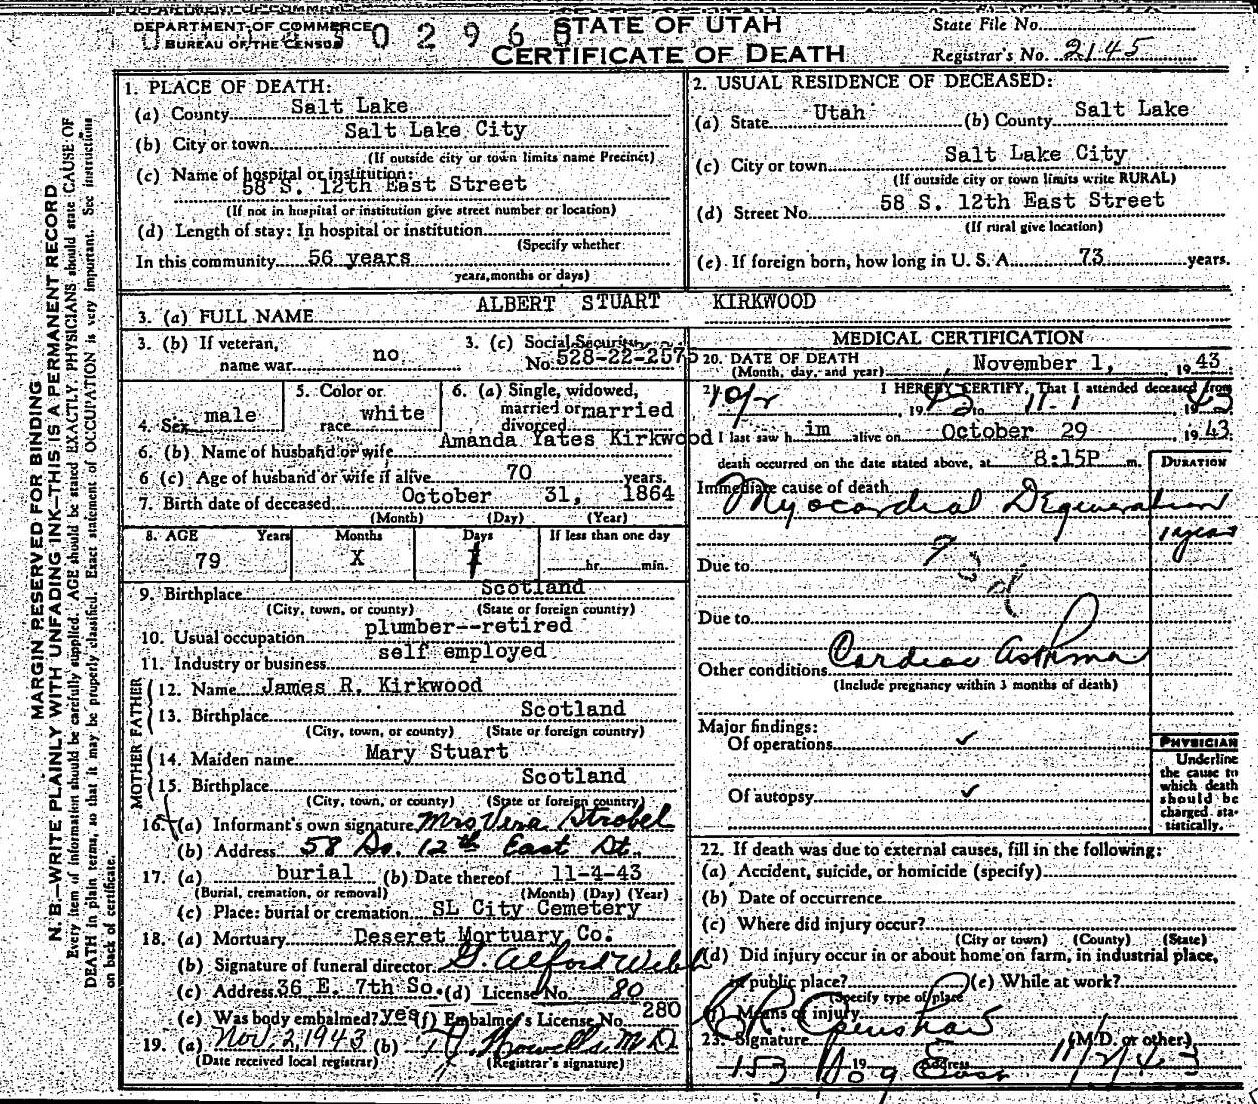 DEPARTMENT OF COMMERCE
BUREAU OF THE CENSUS
0 2 9 6
STATE OF UTAH
CERTIFICATE OF DEATH
State File No.
Registrar's No. 2145
MARGIN RESERVED FOR BINDING
N. B.—WRITE PLAINLY WITH UNFADING INK—THIS IS A PERMANENT RECORD
Every item of information should be carefully supplied. AGE should be stated EXACTLY. PHYSICIANS should state CAUSE OF
DEATH in plain terms, so that it may be properly classified. Exact statement of OCCUPATION is very important. See instructions
on back of certificate.
1. PLACE OF DEATH:
(a) County Salt Lake
(b) City or town Salt Lake City
(If outside city or town limits name Precinct)
(c) Name of hospital or institution:
58 S. 12th East Street
(If not in hospital or institution give street number or location)
(d) Length of stay: In hospital or institution
(Specify whether
In this community 56 years
years, months or days)
2. USUAL RESIDENCE OF DECEASED:
(a) State Utah (b) County Salt Lake
(c) City or town Salt Lake City
(If outside city or town limits write RURAL)
(d) Street No. 58 S. 12th East Street
(If rural give location)
(e) If foreign born, how long in U. S. A. 73 years.
3. (a) FULL NAME ALBERT STUART KIRKWOOD
3. (b) If veteran,
name war no
3. (c) Social Security
No. 528-22-2575
4. Sex male
5. Color or
race white
6. (a) Single, widowed,
married or married
divorced
6. (b) Name of husband or wife Amanda Yates Kirkwood
6 (c) Age of husband or wife if alive 70 years.
7. Birth date of deceased October 31, 1864
(Month) (Day) (Year)
8. AGE Years Months Days If less than one day
79 X 1 hr. min.
9. Birthplace Scotland
(City, town, or county) (State or foreign country)
10. Usual occupation plumber--retired
11. Industry or business self employed
FATHER
12. Name James R. Kirkwood
13. Birthplace Scotland
(City, town, or county) (State or foreign country)
MOTHER
14. Maiden name Mary Stuart
15. Birthplace Scotland
(City, town, or county) (State or foreign country)
16. (a) Informant's own signature Mrs Vera Strobel
(b) Address 58 So. 12th East St.
17. (a) burial (b) Date thereof 11-4-43
(Burial, cremation, or removal) (Month) (Day) (Year)
(c) Place: burial or cremation SL City Cemetery
18. (a) Mortuary Deseret Mortuary Co.
(b) Signature of funeral director G. Alford Webb
(c) Address 36 E. 7th So. (d) License No. 80
(e) Was body embalmed? yes (f) Embalmer's License No. 280
19. (a) Nov. 2, 1943 (b) Howells M.D.
(Date received local registrar) (Registrar's signature)
MEDICAL CERTIFICATION
20. DATE OF DEATH
(Month, day, and year) November 1, 1943
21. I HEREBY CERTIFY, That I attended deceased from
10/2, 1943 to 11-1 1943
I last saw him alive on October 29, 1943
death occurred on the date stated above, at 8:15P m.
DURATION
Immediate cause of death
Myocardial Degeneration
1 year
Due to
Due to
Other conditions Cardiac Asthma
(Include pregnancy within 3 months of death)
Major findings:
Of operations ✓
Of autopsy ✓
PHYSICIAN
Underline
the cause to
which death
should be
charged sta-
tistically.
22. If death was due to external causes, fill in the following:
(a) Accident, suicide, or homicide (specify)
(b) Date of occurrence
(c) Where did injury occur?
(City or town) (County) (State)
(d) Did injury occur in or about home on farm, in industrial place,
in public place? (e) While at work?
(Specify type of place
Means of injury
23. Signature C. R. Openshaw (M.D. or other)
Address 11/2/43